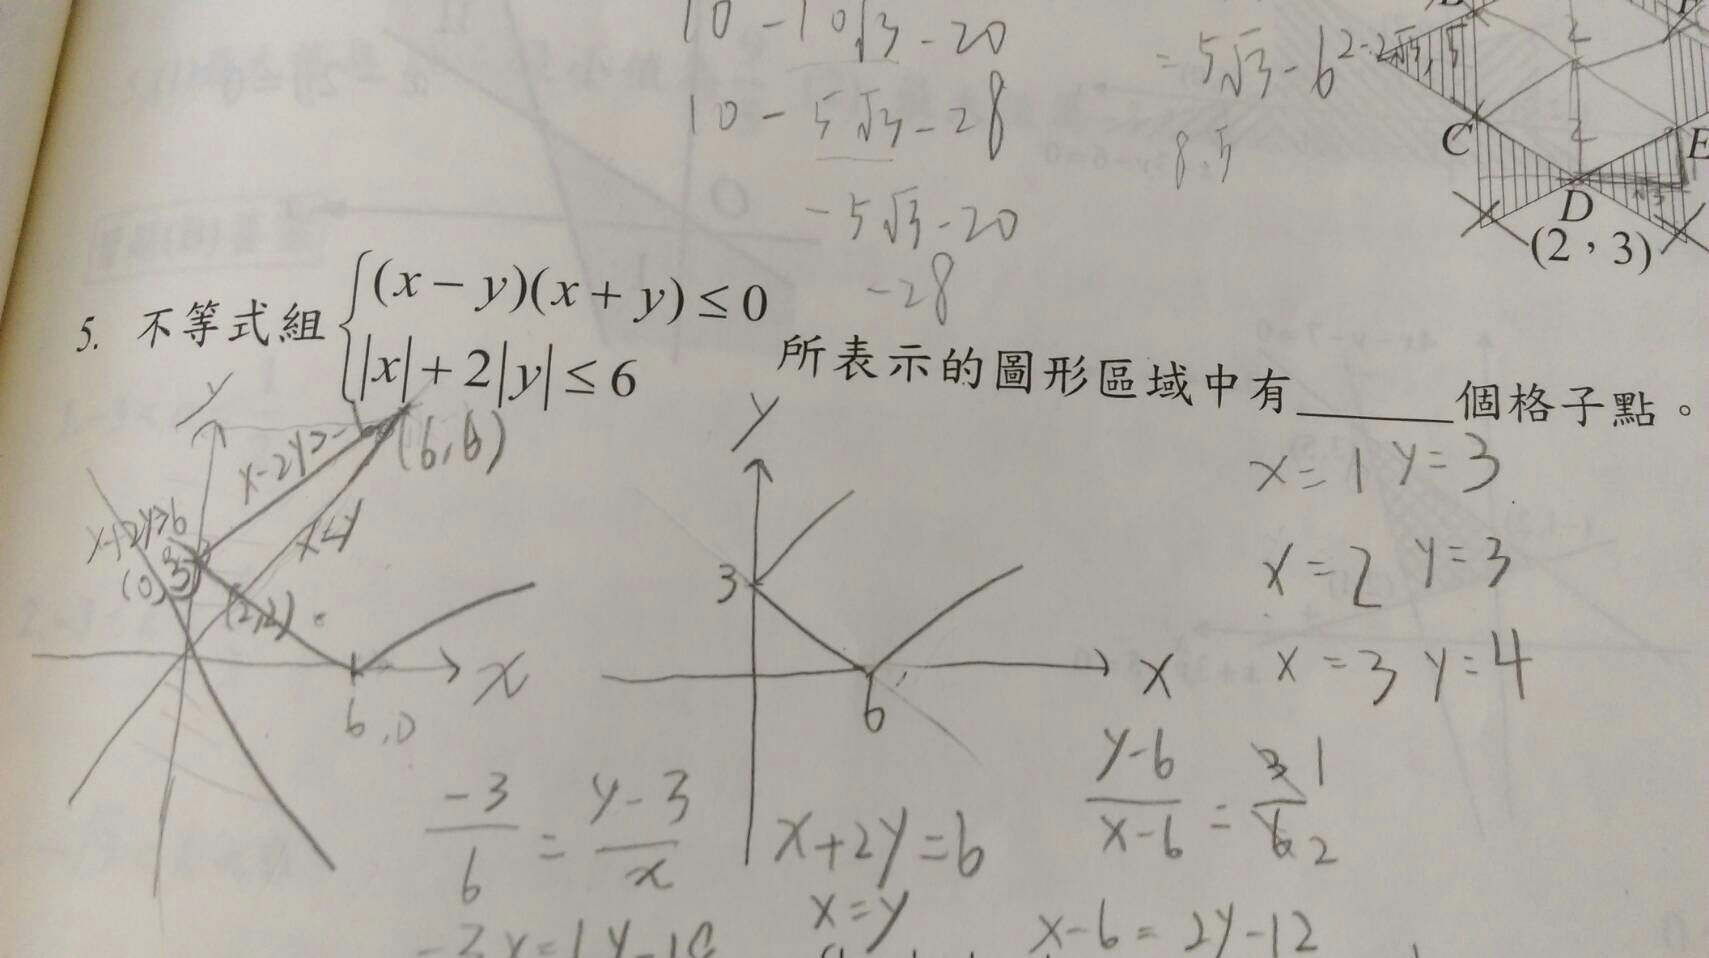 10 - 10√3 - 20
10 - 5√3 - 28
-5√3 - 20
-28
= 5√3 - 6
2-2√3, 5
8, 5
2
2
C
E
D
(2，3)
5. 不等式組 { (x - y)(x + y) ≤ 0
|x| + 2|y| ≤ 6 所表示的圖形區域中有______個格子點。
y
x-2y≥-
(6,6)
x+2y≥6
x≤y
(0,3)
(2,2)
x
6,0
y
3
6
x
x=1 y=3
x=2 y=3
x=3 y=4
-3/6 = (y-3)/x
x+2y=6
x=y
(y-6)/(x-6) = 3/6 1/2
x-6=2y-12